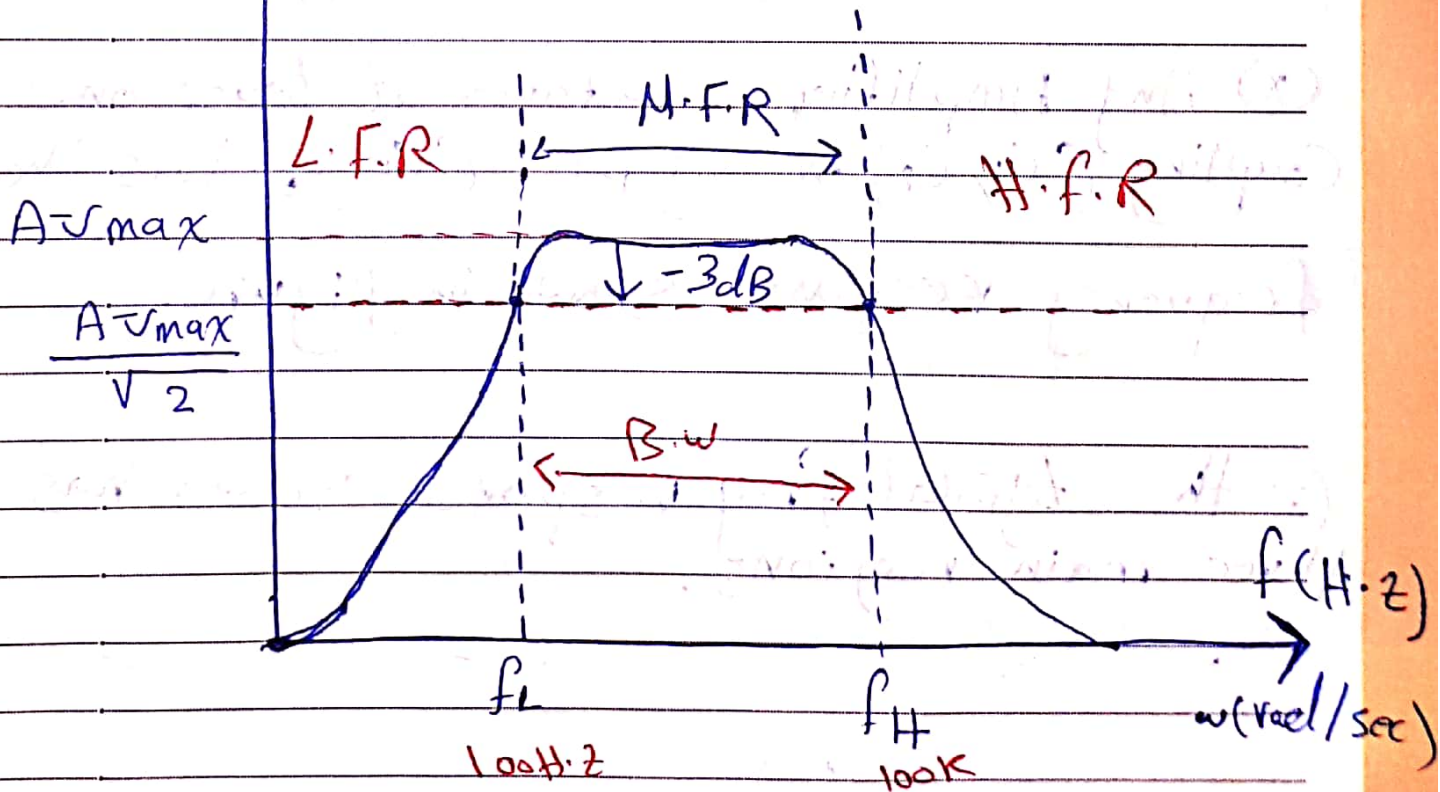 M.F.R
L.F.R
H.f.R
Avmax
-3dB
Avmax
√2
B.W
f(H.z)
fL
fH
w(rad/sec)
100H.z
100K